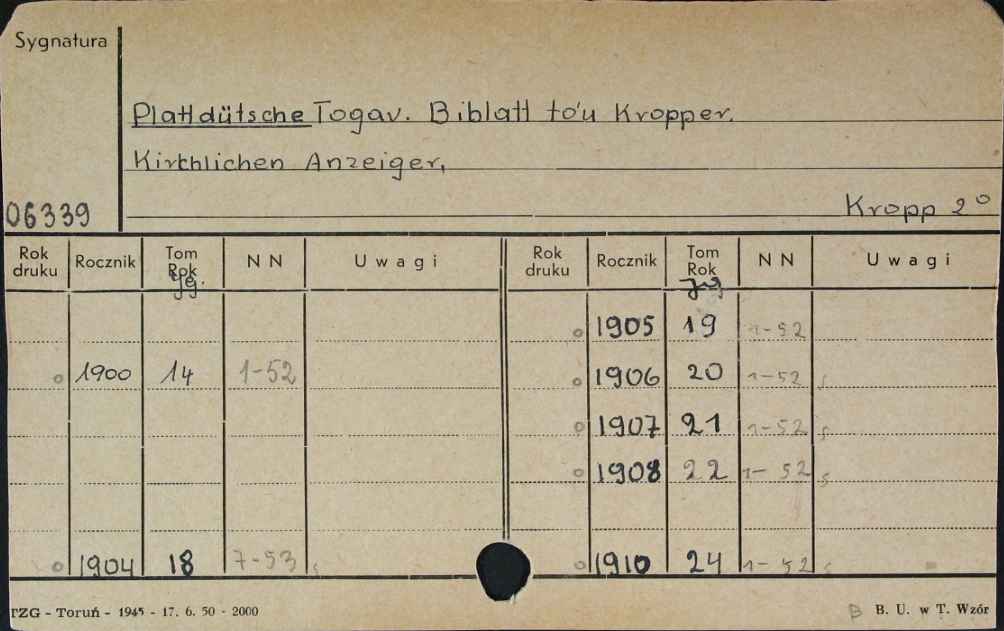 Sygnatura
Plattdütsche Togav. Biblatt to'u Kropper.
Kirchlichen Anzeiger,
06339
Kropp 2°
Rok druku Rocznik Tom Rok Jg. N N Uwagi Rok druku Rocznik Tom Rok Jg N N Uwagi
o 1905 19 1-52
o 1900 14 1-52 o 1906 20 1-52 s
o 1907 21 1-52 s
o 1908 22 1-52 s
o 1904 18 7-53 s o 1910 24 1-52 s
TZG - Toruń - 1945 - 17. 6. 50 - 2000
B B. U. w T. Wzór